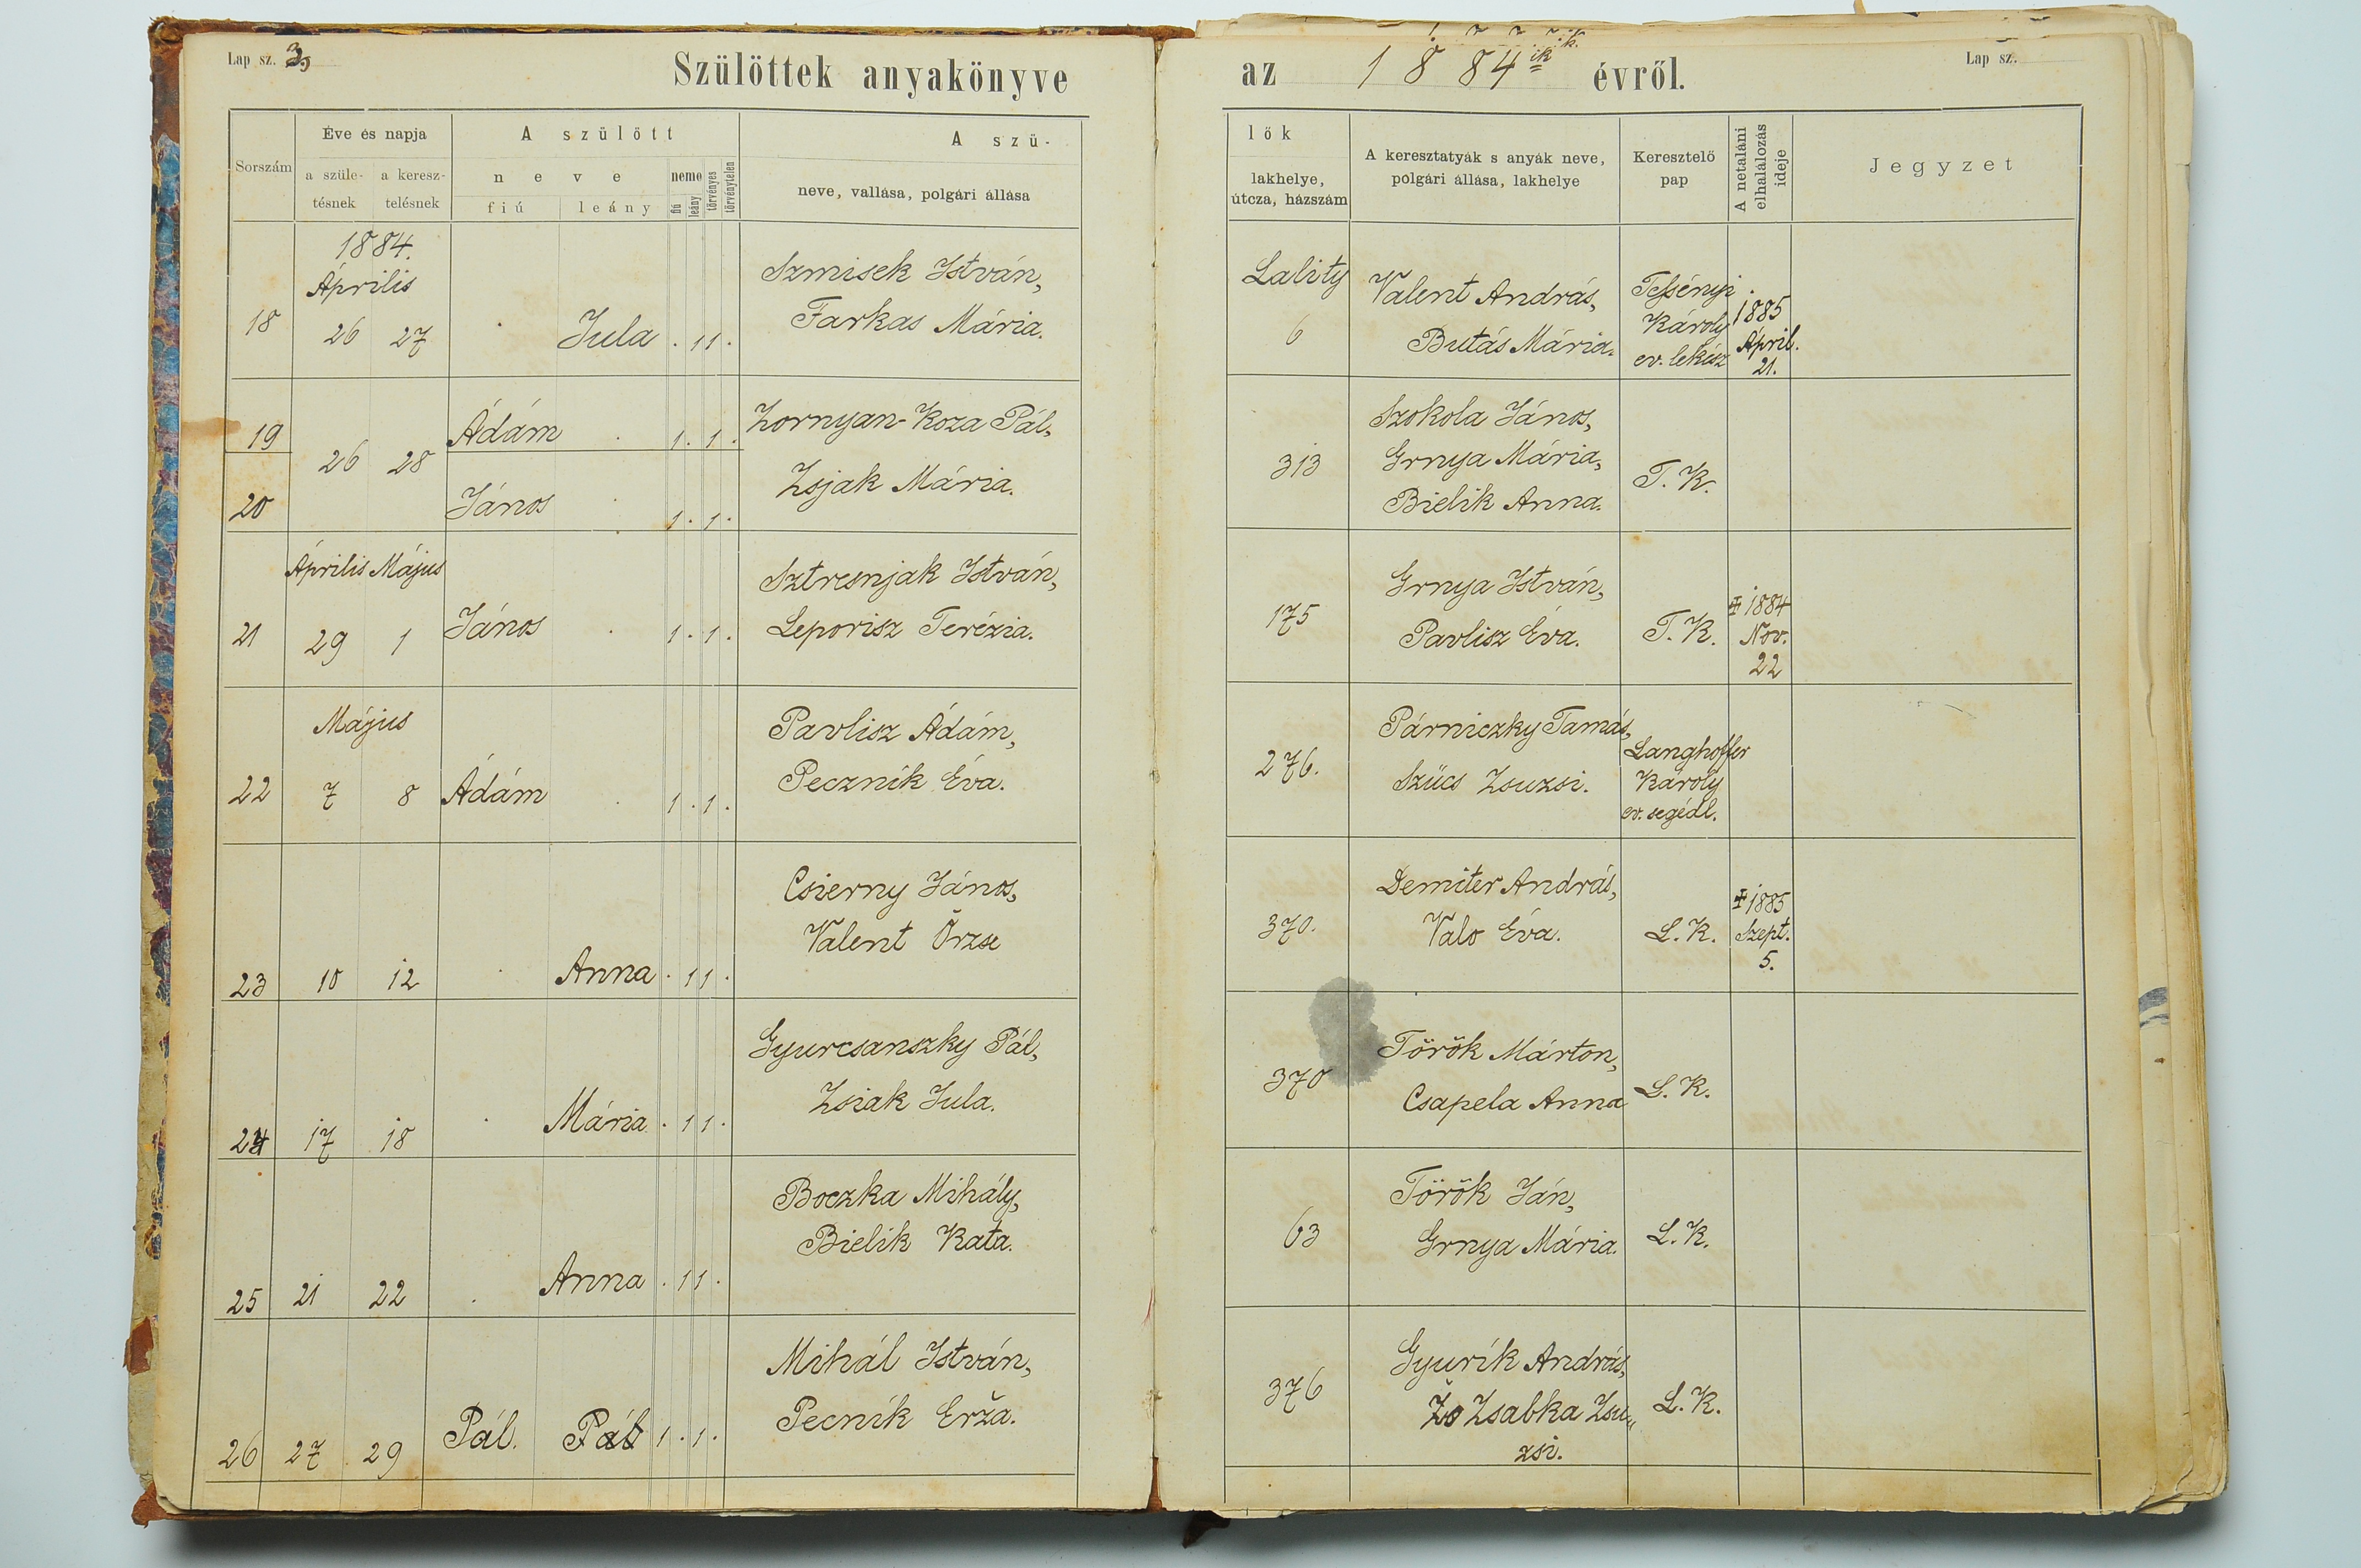 Lap sz. 3.
Szülöttek anyakönyve
Sorszám
Éve és napja
a szüle-
tésnek
a keresz-
telésnek
A szülött
neve
fiú
leány
neme
fiú
leány
törvényes
törvénytelen
A szü-
neve, vallása, polgári állása
1884.
Április
18 26 27 . Jula . 1 1 .
Szmisek István,
Farkas Mária.
19 Ádám . 1 . 1 .
26 28
20 János . 1 . 1 .
Zornyan-Koza Pál,
Zsjak Mária.
Április Május
21 29 1 János . 1 . 1 .
Sztresnjak István,
Leporisz Terézia.
Május
22 7 8 Ádám . 1 . 1 .
Pavlisz Ádám,
Pecznik Éva.
23 10 12 . Anna . 1 1 .
Csierny János,
Valent Örzse
24 17 18 . Mária . 1 1 .
Gyurcsanszky Pál,
Zsiak Jula.
25 21 22 . Anna . 1 1 .
Boczka Mihály,
Bielik Kata.
26 27 29 Pál. Pál 1 . 1 .
Mihál István,
Pecník Erža.
az 1884ik évről.
Lap sz.
lök
lakhelye,
útcza, házszám
A keresztatyák s anyák neve,
polgári állása, lakhelye
Keresztelő
pap
A netaláni
elhalálozás
ideje
Jegyzet
Lality
6
Valent András,
Butás Mária.
Tessényi
Károly
ev. lekész
1885
April.
21.
313
Szokola János,
Grnya Mária,
Bielik Anna.
T. K.
175
Grnya István,
Pavlisz Éva.
T. K.
1884
Nov.
22
276.
Párniczky Tamás,
Szücs Zsuzsi.
Langhoffer
Károly
ev. segédl.
370.
Demiter András,
Valo Éva.
L. K.
1885
Szept.
5.
370
Török Márton,
Csapela Anna
L. K.
63
Török Ján,
Grnya Mária.
L. K.
376
Gyurík András,
Zo Zsabka Zsu„
zsi.
L. K.